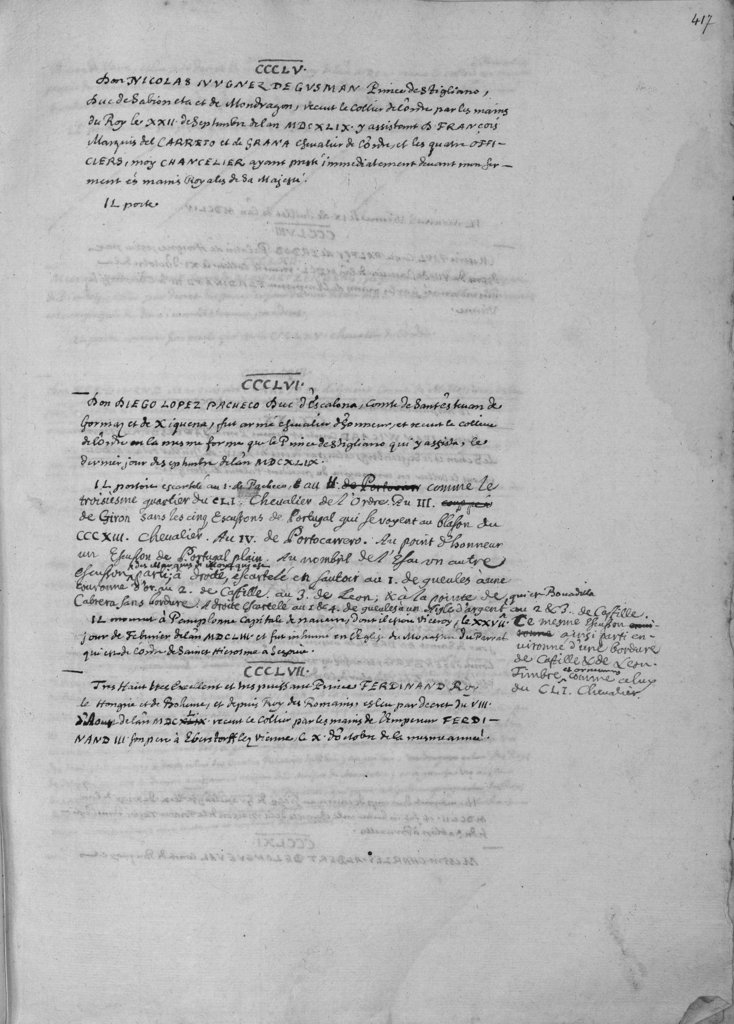 417
CCCLV.
Don NICOLAS NUGNEZ DE GUSMAN Prince de Stigliano,
Duc de Sabioneta et de Mondragon, receut le Collier de l'ordre par les mains
du Roy le XXII de Septembre de l'an MDCXLIX. y assistant D FRANÇOIS
Marquis del CARRETO et de GRANA chevalier de l'Ordre, et les quatre OFFI-
CIERS, moy CHANCELIER ayant presté immediatement devant mon ser-
ment és mains Royales de Sa Majesté.
IL porte
CCCLVI.
Don DIEGO LOPEZ PACHECO Duc d'Escalona, Comte de Santestevan de
Gormaz et de Xiquena, fut armé chevalier d'honneur, et receut le Collier
de l'ordre en la mesme forme que le Prince de Stigliano qui y assista, le
dernier jour de septembre de l'an MDCXLIX.
IL portoit escartelé au 1. de Pacheco, au II. de Portocar comme le
troisiesme quartier du CLI. Chevalier de l'Ordre. Au III. coupé
de Giron sans les cinq Escussons de Portugal qui se voyent au blason du
CCCXIII. Chevalier. Au IV. de Portocarrero. Au point d'honneur
un Escusson de Portugal plain. Au nombril de l'escu un autre
escusson parti, à droite, escartelé en sautoir au 1. de gueules a une
couronne d'or. au 2. de Castille. au 3. de Leon, & à la pointe de
Cabrera sans bordure. A droite escartelé au 1 & 4. de gueules a un Aigle d'argent au 2 & 3. de Castille.
qui est Bouadila
Ce mesme escusson
aussi parti en-
vironné d'une bordure
de Castille & de Leon.
Timbre et ornemens comme celuy
du CLI. Chevalier
IL mourut à Pamplonne Capitale de navarre, dont il estoit Viceroy, le XXVII
jour de Febvrier de l'an MDCLIII et fut inhumé en l'Eglise du Monastere du Parral
qui est de l'ordre de Sainct Hierosme à Segovie.
CCCLVII.
Tres Haut tres Excellent et tres puissant Prince FERDINAND Roy
de Hongrie et de Boheme, et depuis Roy des Romains, esleu par decret du VIII.
d'Aoust de l'an MDCXLIX receut le Collier par les mains de l'Empereur FERDI-
NAND III. son pere à Eberstorff lez vienne, le X. d'octobre de la mesme année.